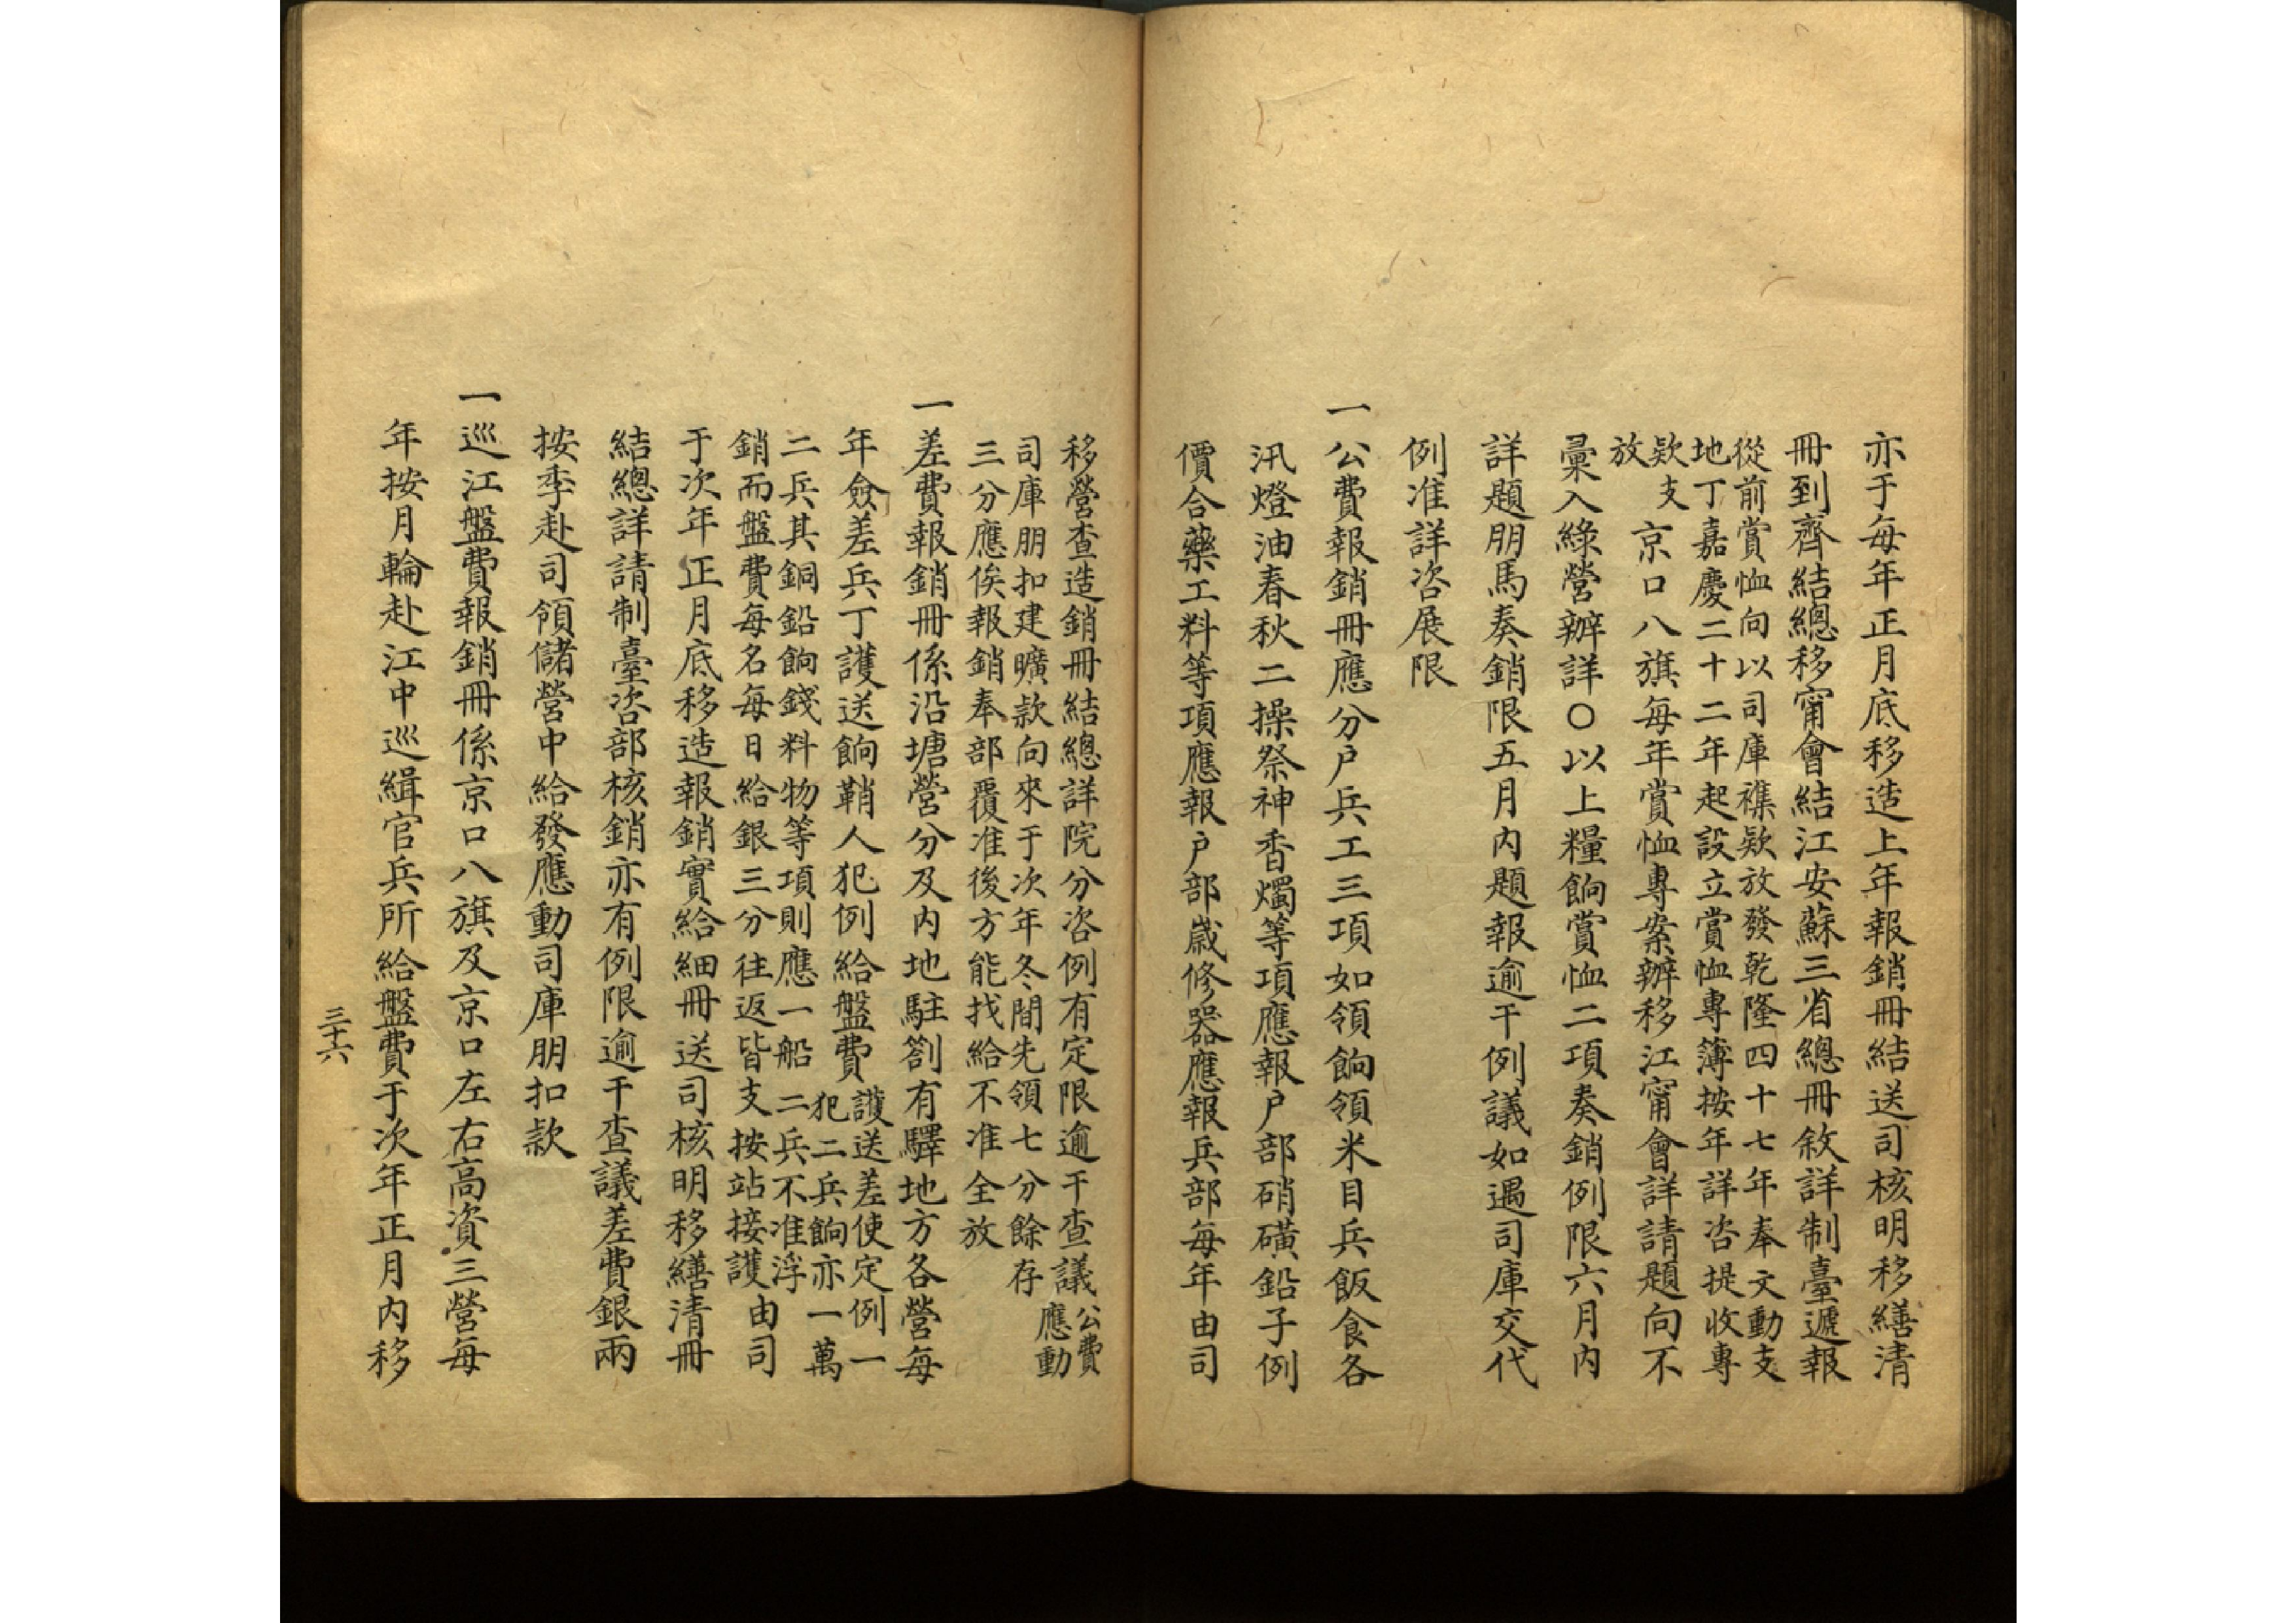 亦于每年正月底移造上年報銷冊結送司核明移繕清
冊到齊結總移甯會結江安蘇三省總冊敘詳制臺遞報
從前賞恤向以司庫襍欵放發乾隆四十七年奉文動支
地丁嘉慶二十二年起設立賞恤專簿按年詳咨提收專
欵支
放
京口八旗每年賞恤專案辦移江甯會詳請題向不
彙入綠營辦詳〇以上糧餉賞恤二項奏銷例限六月內
詳題朋馬奏銷限五月內題報逾干例議如遇司庫交代
例准詳咨展限
一
公費報銷冊應分戶兵工三項如領餉領米目兵飯食各
汛燈油春秋二操祭神香燭等項應報戶部硝磺鉛子例
價合藥工料等項應報戶部嵗修器應報兵部每年由司
移營查造銷冊結總詳院分咨例有定限逾干查議
公費
應動
司庫朋扣建曠款向來于次年冬間先領七分餘存
三分應俟報銷奉部覆准後方能找給不准全放
一
差費報銷冊係沿塘營分及內地駐劄有驛地方各營每
年僉差兵丁護送餉鞘人犯例給盤費
護送差使定例一
犯二兵餉亦一萬
二兵其銅鉛餉錢料物等項則應一船二兵不准浮
銷而盤費每名每日給銀三分往返皆支按站接護
由司
于次年正月底移造報銷實給細冊送司核明移繕清冊
結總詳請制臺咨部核銷亦有例限逾干查議差費銀兩
按季赴司領儲營中給發應動司庫朋扣款
一
巡江盤費報銷冊係京口八旗及京口左右高資三營每
年按月輪赴江中巡緝官兵所給盤費于次年正月內移
三十六